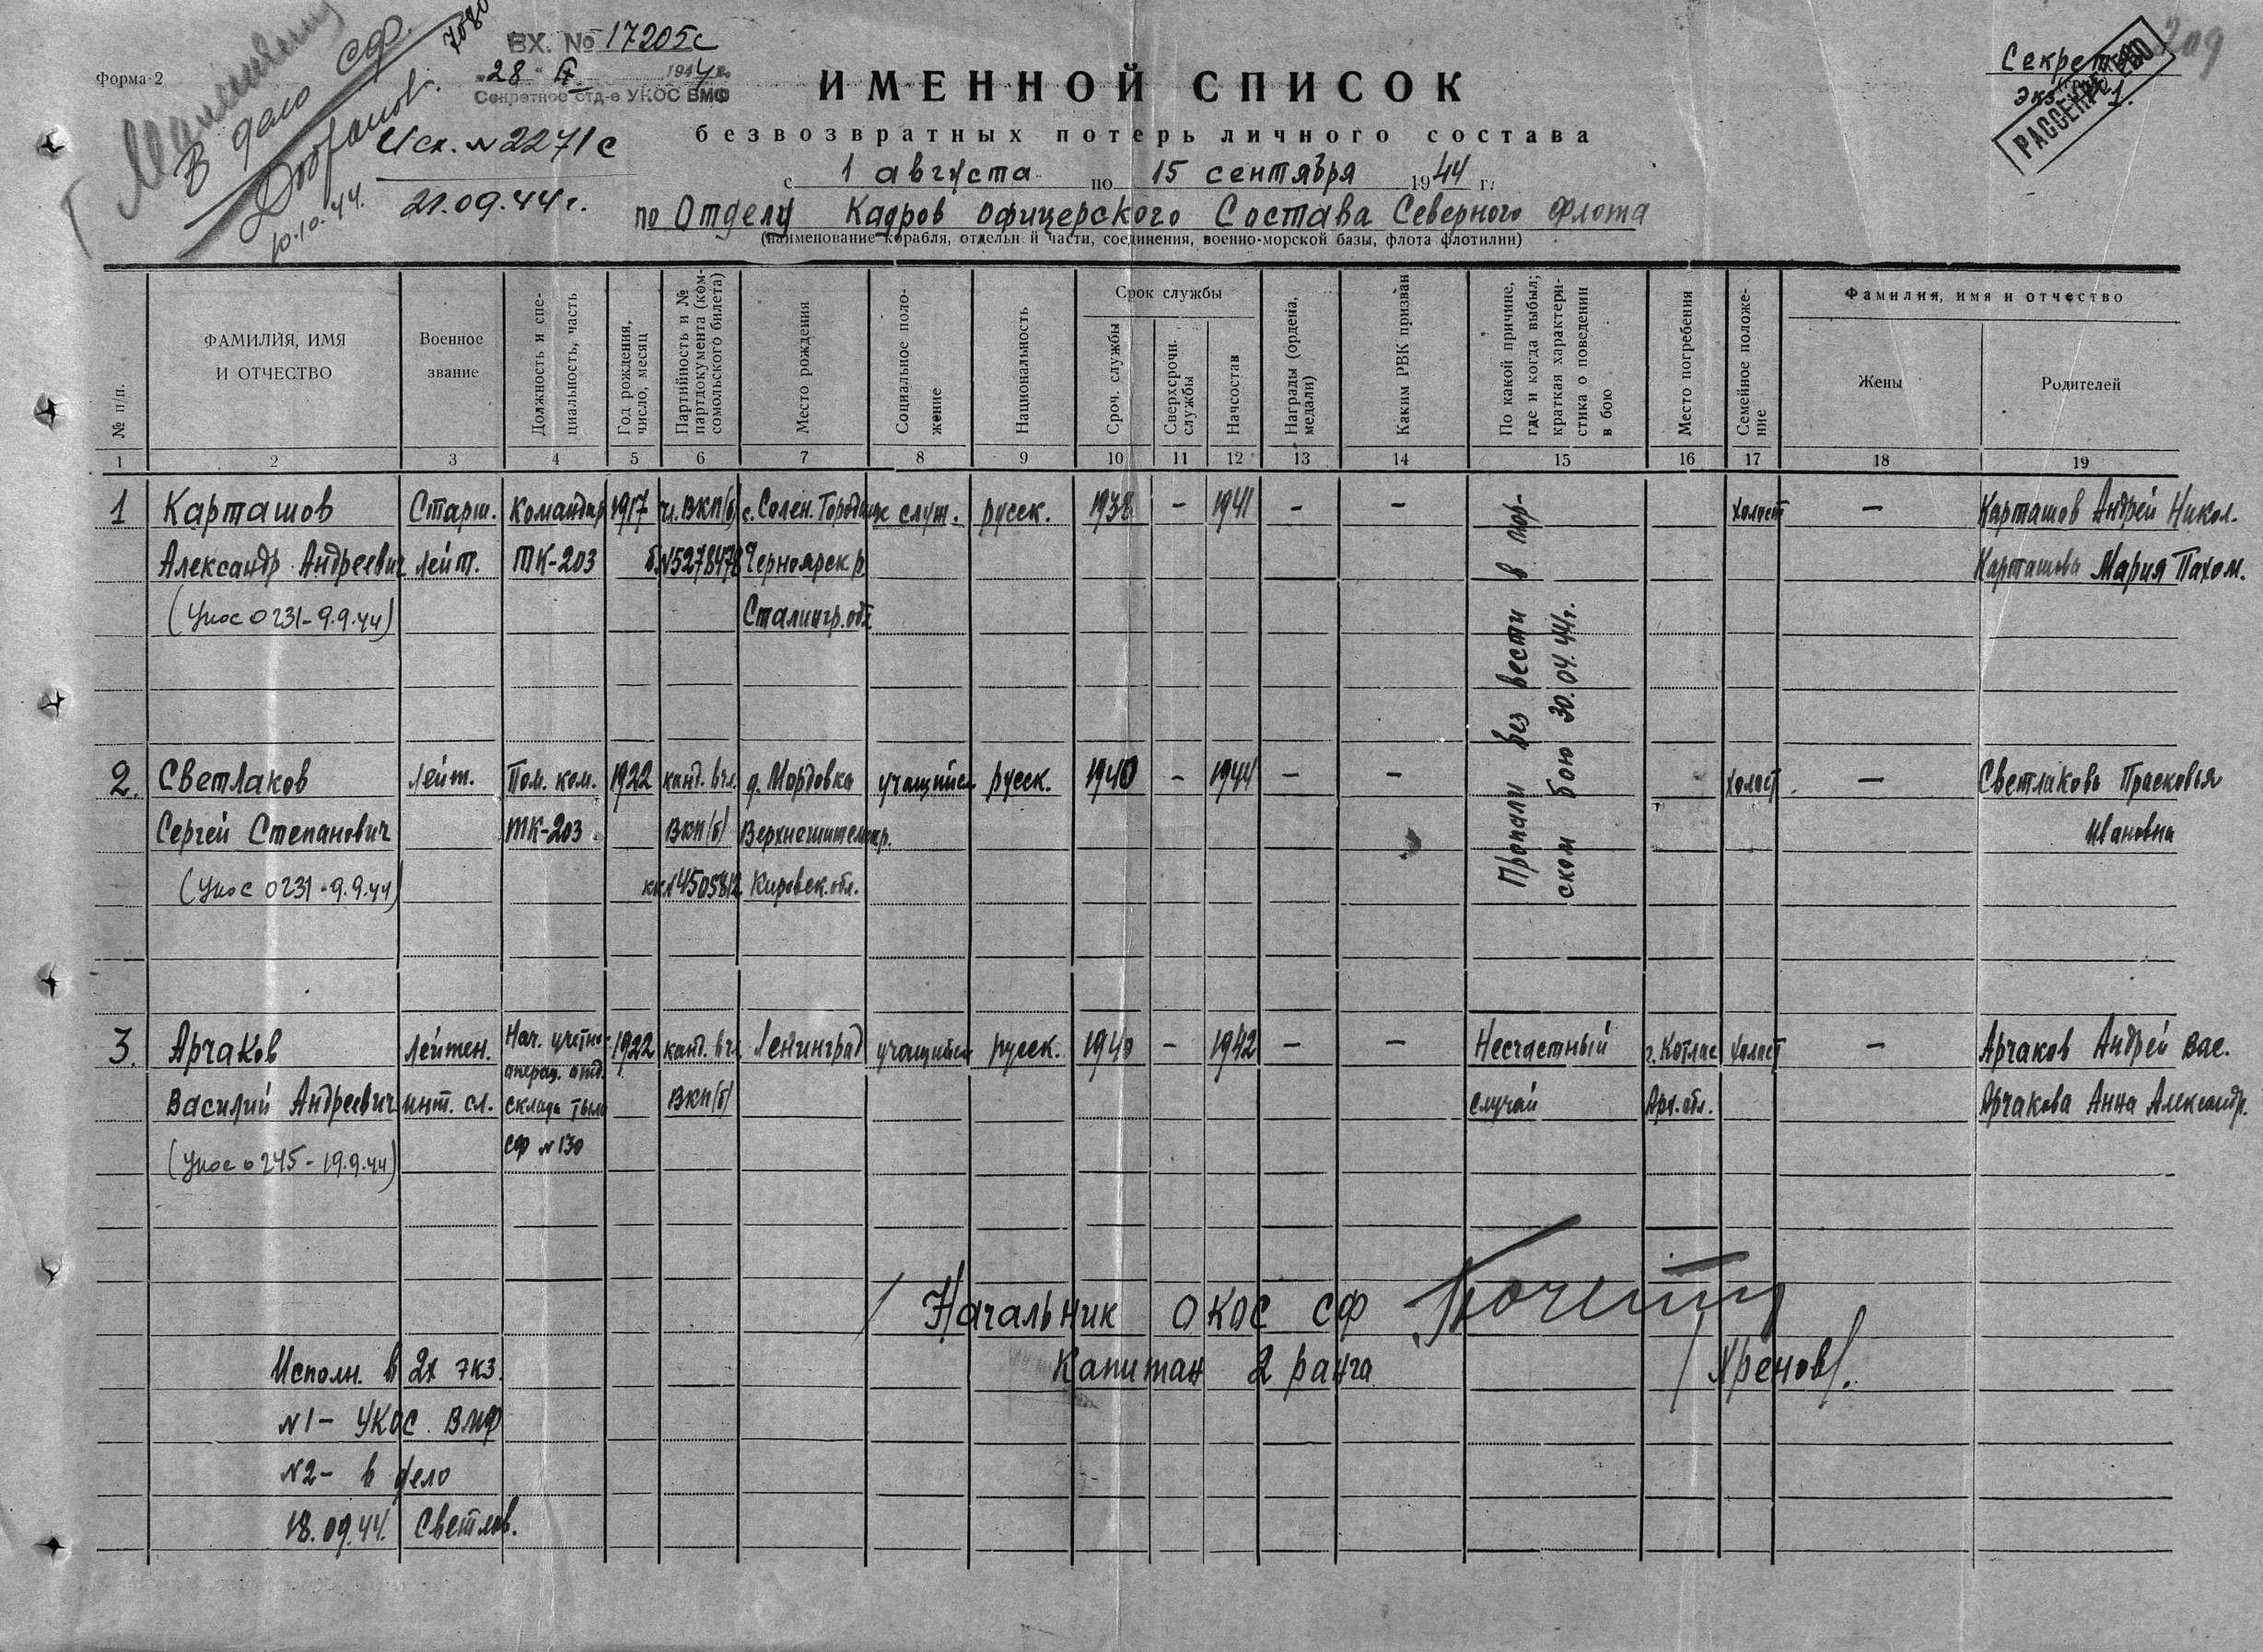 Форма 2
В дело СФ.
10.10.44.
ВХ. № 17205с
"28" IX 1944 г.
Секретное отд-е УКОС ВМФ
Исх. №2271с
21.09.44 г.
Секретно
Экз. № 1.
РАССЕКРЕЧЕНО
209
ИМЕННОЙ СПИСОК
безвозвратных потерь личного состава
с 1 августа по 15 сентября 1944 г.
по Отделу Кадров Офицерского Состава Северного Флота
(наименование корабля, отдельн й части, соединения, военно-морской базы, флота флотилии)
№ п/п.
ФАМИЛИЯ, ИМЯ
И ОТЧЕСТВО
Военное
звание
Должность и спе-
циальность, часть
Год рождения,
число, месяц
Партийность и №
партдокумента (ком-
сомольского билета)
Место рождения
Социальное поло-
жение
Национальность
Срок службы
Сроч. службы
Сверхсрочн.
службы
Начсостав
Награды (ордена,
медали)
Каким РВК призван
По какой причине,
где и когда выбыл;
краткая характери-
стика о поведении
в бою
Место погребения
Семейное положе-
ние
Фамилия, имя и отчество
Жены
Родителей
1 2 3 4 5 6 7 8 9 10 11 12 13 14 15 16 17 18 19
1 Карташов Старш. Командир 1917 чл. ВКП(б) с. Солен. Городище служ. русск. 1938 – 1941 – – холост – Карташов Андрей Никол.
Александр Андреевич лейт. ТК-203 б.№5278478 Черноярск р. Карташова Мария Пахом.
(Укос 0231-9.9.44) Сталингр. обл.
Пропали без вести в мор-
ском бою 30.04.44г.
2. Светлаков лейт. Пом. ком. 1922 канд. в чл. д. Мордовка учащийся русск. 1940 – 1944 – – холост – Светлакова Прасковья
Сергей Степанович ТК-203 ВКП(б) Ивановна
(Укос 0231-9.9.44) кк№4505812 Кировск. обл.
3. Арчаков лейтен. Нач. учетно- 1922 канд. в чл. Ленинград учащийся русск. 1940 – 1942 – – Несчастный г. Котлас холост – Арчаков Андрей Вас.
операц. отд.
Василий Андреевич инт. сл. склада тыла ВКП(б) случай Арх. обл. Арчакова Анна Александр.
СФ №130
(Укос 0245-19.9.44)
Начальник ОКОС СФ
Капитан 2 ранга /Хренов/.
Исполн. в 2х экз.
№1- УКОС ВМФ
№2- в дело
18.09.44. Светлов.